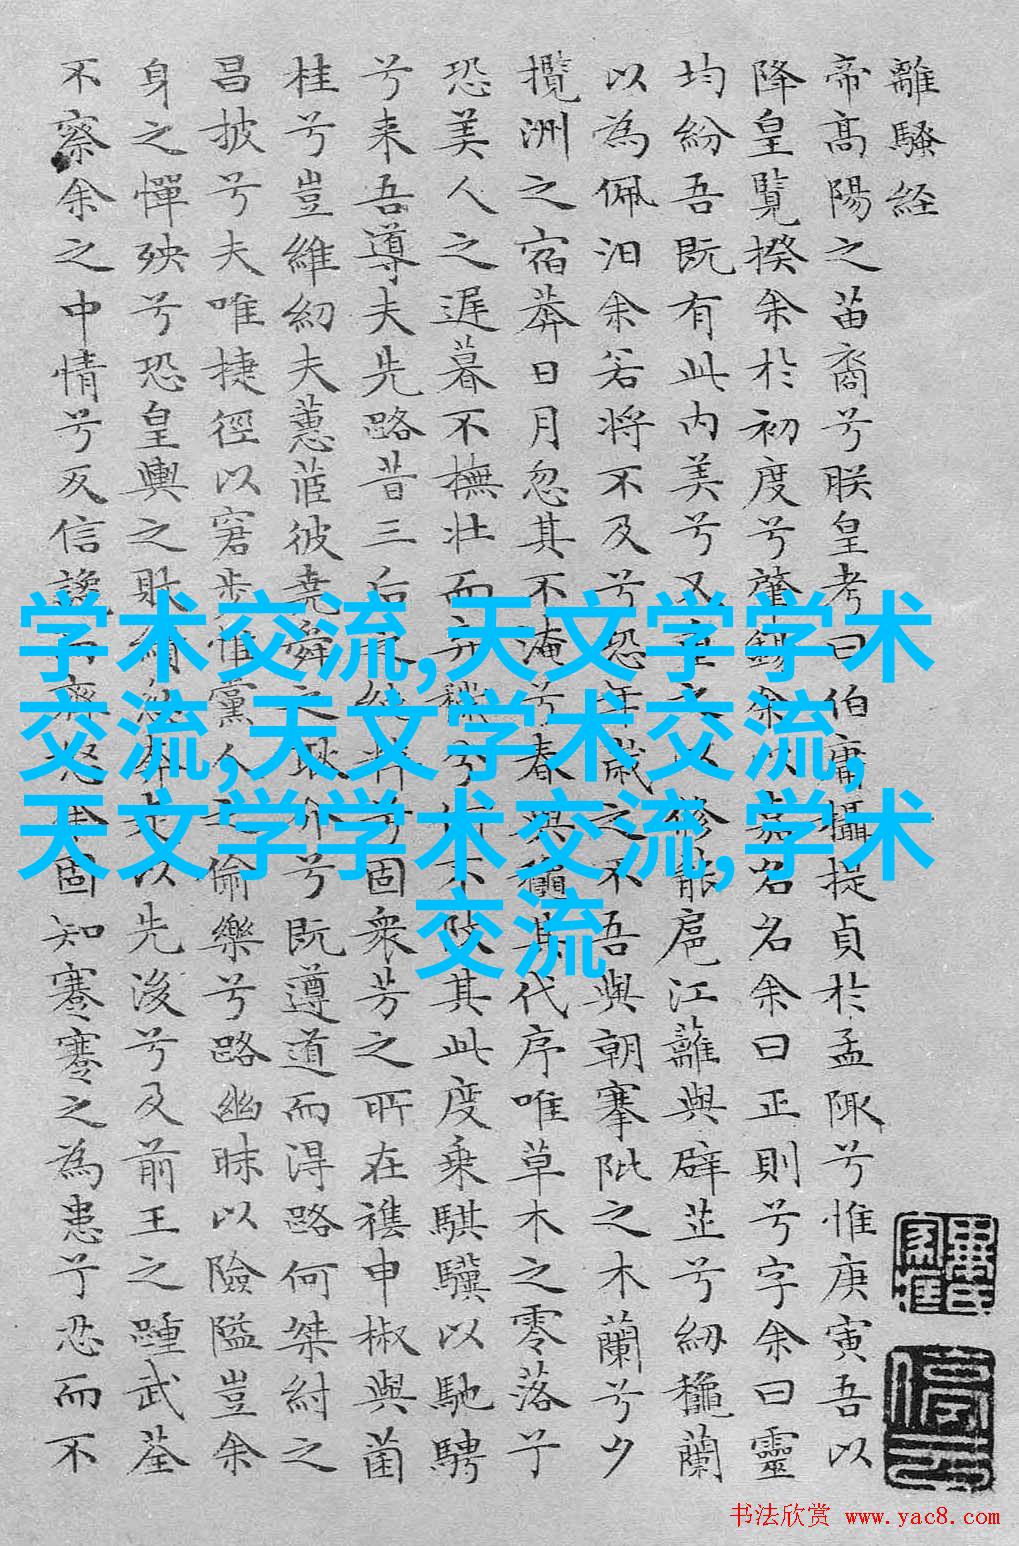 離騷経
帝高陽之苗裔兮朕皇考曰伯庸攝提貞於孟陬兮惟庚寅吾以
降皇覽揆余於初度兮肇錫余以嘉名名余曰正則兮字余曰靈
均紛吾既有此内美兮又重之以脩能扈江蘺與辟芷兮紉龝蘭
以為佩汨余若將不及兮恐年歲之不吾與朝搴阰之木蘭兮夕
攬洲之宿莽日月忽其不淹兮春與龝其代序唯草木之零落兮
恐美人之遲暮不撫壯而弃穢兮何不改其此度乗騏驥以馳騁
兮来吾導夫先路昔三后之純粹兮固衆芳之所在襍申椒與菌
桂兮豈維紉夫蕙茝彼堯舜之耿介兮既遵道而得路何桀紂之
昌披兮夫唯捷徑以窘步惟黨人之偷樂兮路幽昧以險隘豈余
身之憚殃兮恐皇輿之敗績忽奔走以先後兮及前王之踵武荃
不察余之中情兮反信讒而齌怒余固知謇謇之為患兮忍而不
学术交流,天文学学术
交流,天文学术交流,
天文学学术交流,学术
交流
书法欣赏 www.yac8.com